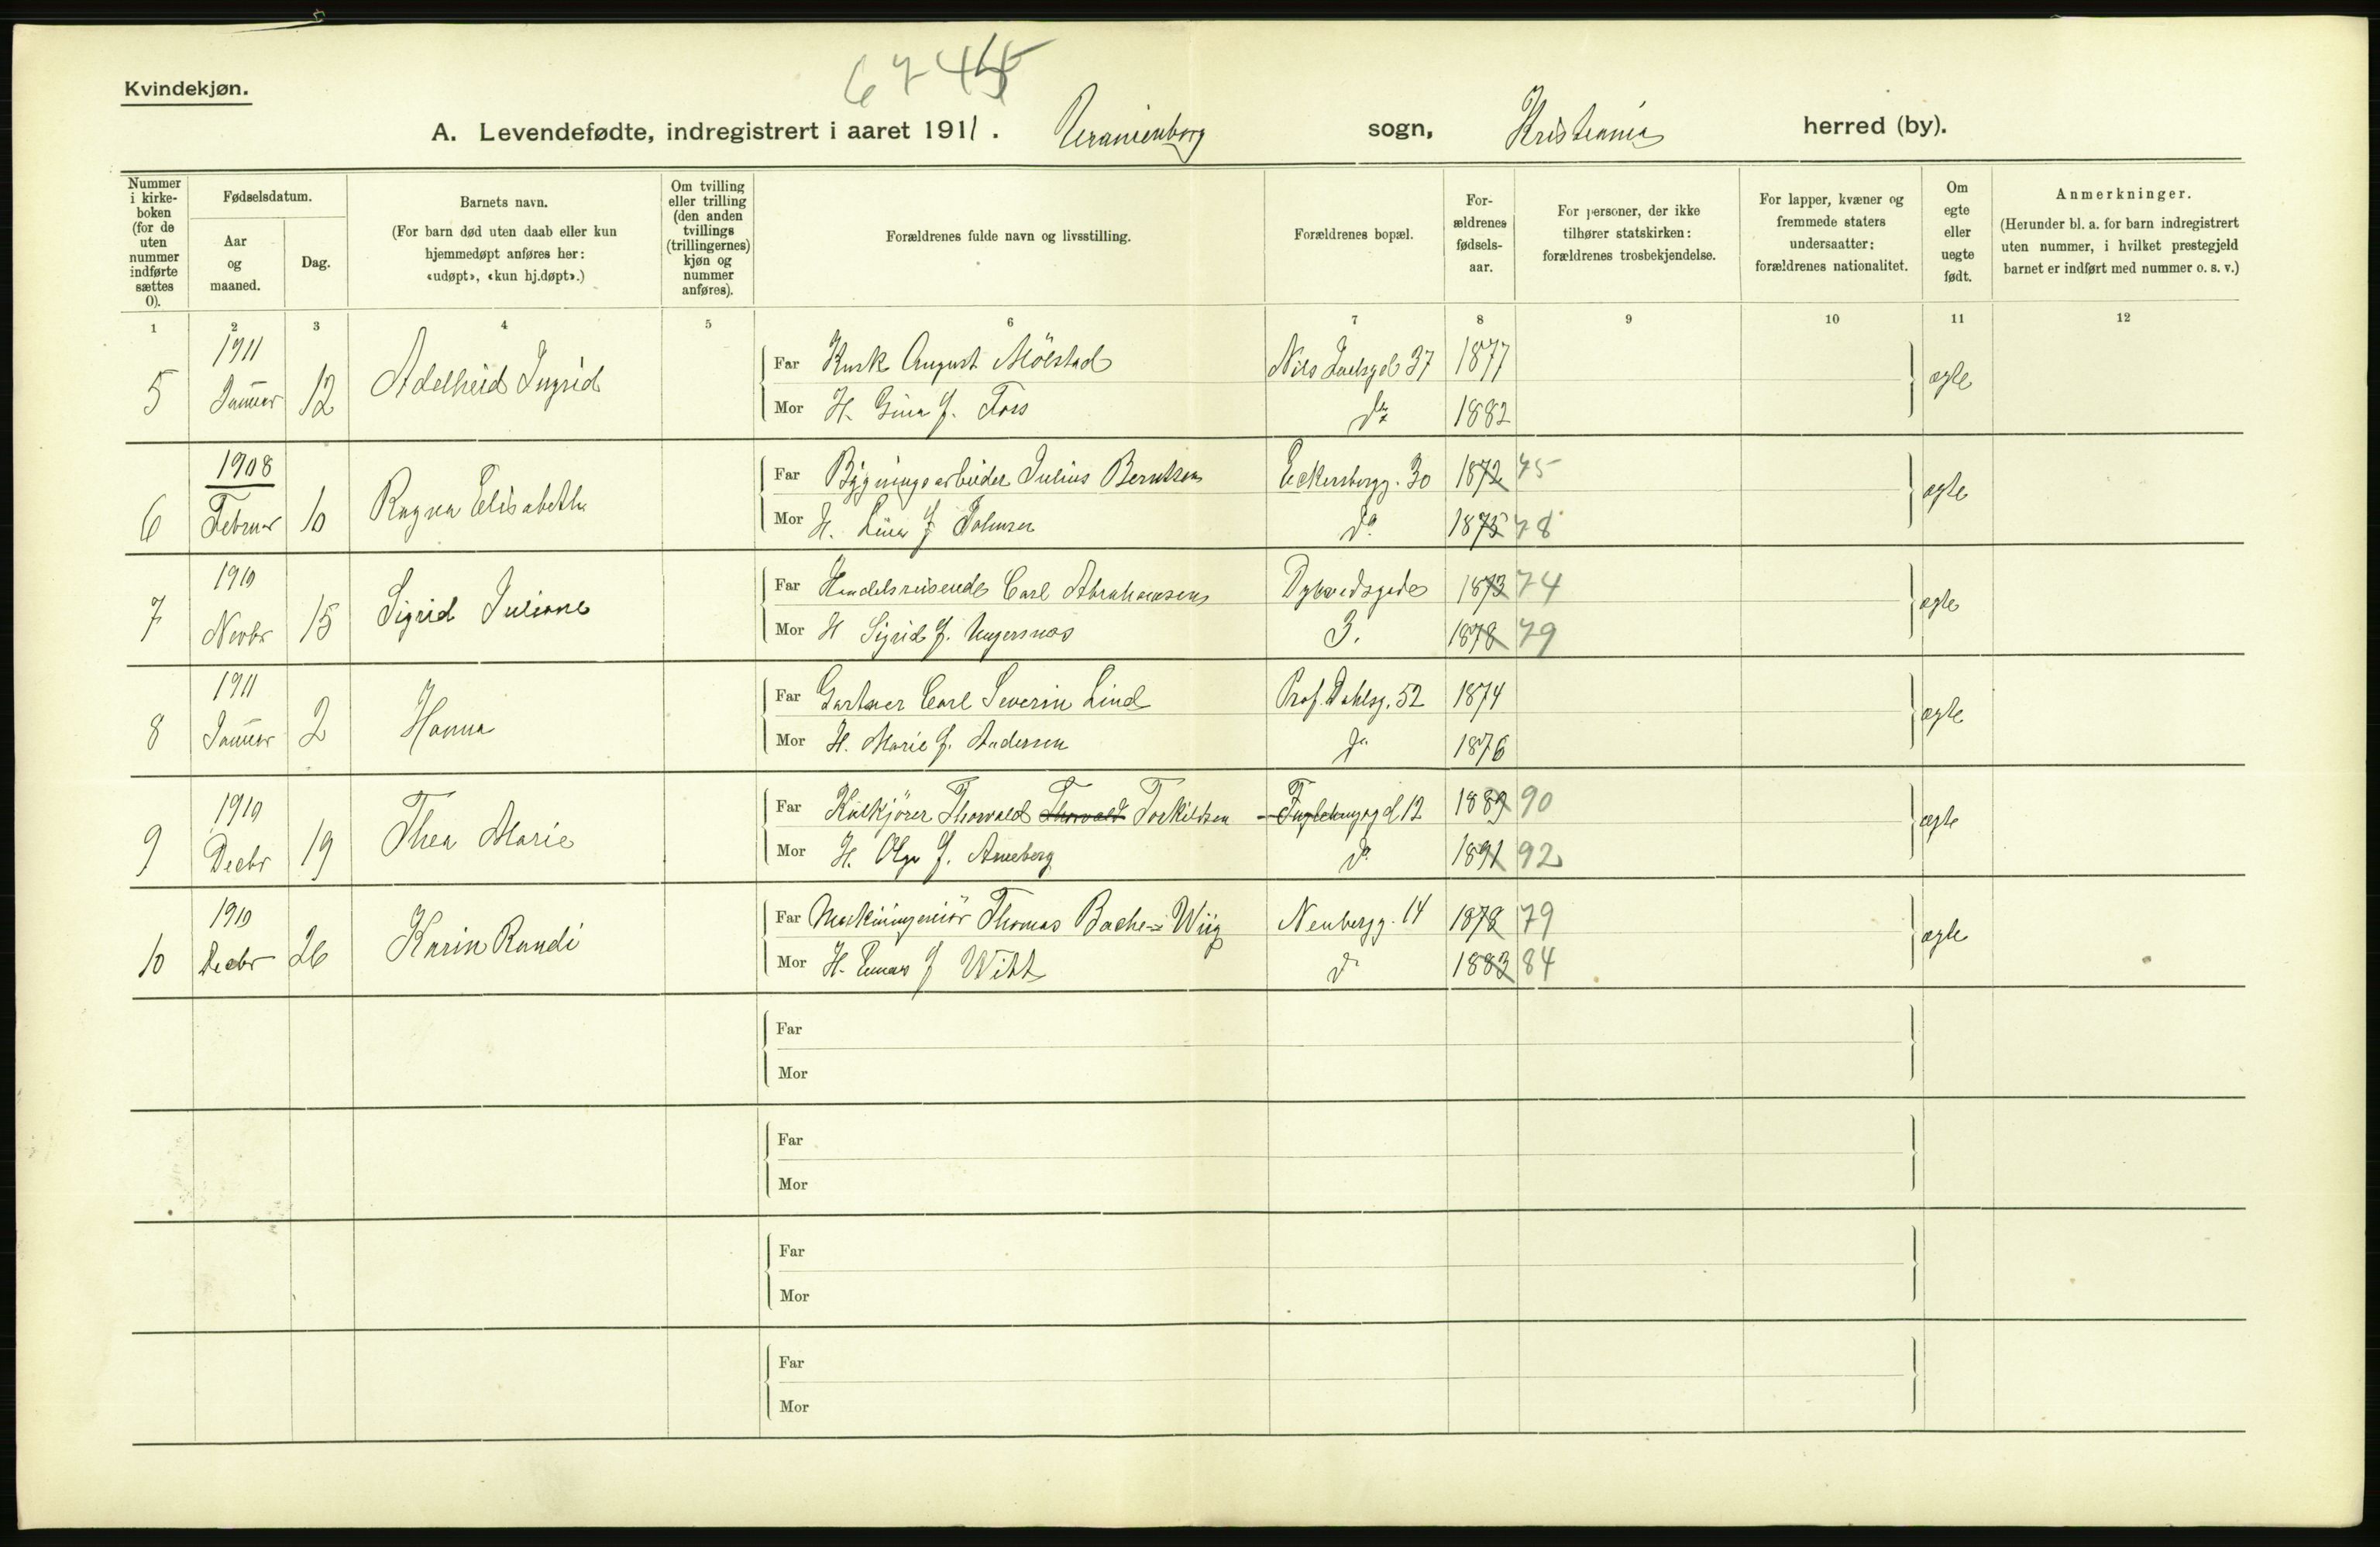 6745
Kvindekjøn.
A. Levendefødte, indregistrert i aaret 1911. Uranienborg sogn, Kristiania herred (by).
Nummer i kirkeboken (for de uten nummer indførte sættes 0).
Fødselsdatum.
Aar og maaned.
Dag.
Barnets navn.
(For barn død uten daab eller kun hjemmedøpt anføres her: «udøpt», «kun hj.døpt».)
Om tvilling eller trilling (den anden tvillings (trillingernes) kjøn og nummer anføres).
Forældrenes fulde navn og livsstilling.
Forældrenes bopæl.
Forældrenes fødselsaar.
For personer, der ikke tilhører statskirken: forældrenes trosbekjendelse.
For lapper, kvæner og fremmede staters undersaatter: forældrenes nationalitet.
Om egte eller uegte født.
Anmerkninger.
(Herunder bl. a. for barn indregistrert uten nummer, i hvilket prestegjeld barnet er indført med nummer o. s. v.)
1 2 3 4 5 6 7 8 9 10 11 12
5 1911 Januar 12 Adelheid Ingrid ægte
Far Kusk August Mölstad Nils Juelsgd 37 1877
Mor H. Gina f. Fors do 1882
6 1908 Februar 10 Ragna Elisabeth ægte
Far Bygningsarbeider Julius Berntsen Eckersbergg. 30 1872 75
Mor H. Lina f Johnsen do 1875 78
7 1910 Novbr 15 Sigrid Juliane ægte
Far Handelsreisende Carl Abrahamsen 1873 74
Mor H Sigrid f. 3. 1878 79
8 1911 Januar 2 Hanna ægte
Far Gartner Carl Severin Lind Prof. Dahlsg. 52 1874
Mor H. Marie f. Andersen do 1876
9 1910 Decbr 19 Thea Marie ægte
Far Kulkjörer Thorvald Thorvald Torkildsen 12 1889 90
Mor H. Olga f. Aneberg do 1891 92
10 1910 Decbr 26 Karin Randi ægte
Far Maskiningeniör Thomas Bache-Wiig Neubergg. 14 1878 79
Mor H. f Witt do 1883 84
Far
Mor
Far
Mor
Far
Mor
Far
Mor